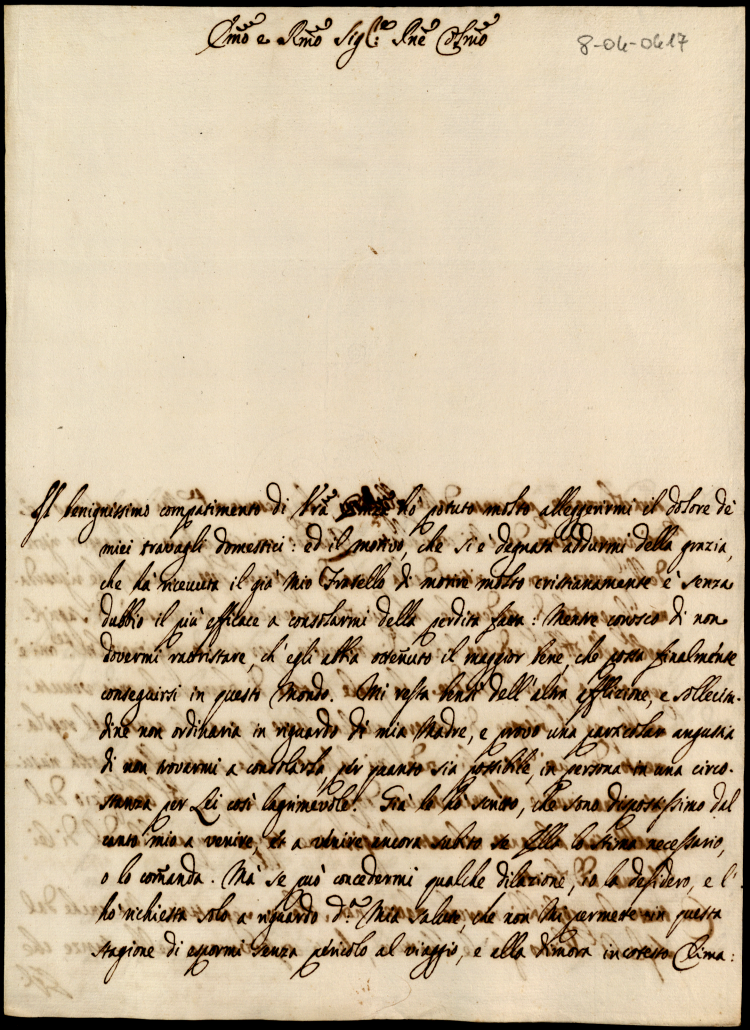 Emo e Rmo Sig.re Pne Colmo
8-04-0417
Il benignissimo compatimento di Vra hà potuto molto alleggerirmi il dolore de'
miei travagli domestici: ed il motivo, che si è degnata addurmi della grazia,
che hà ricevuta il già mio Fratello di morire molto cristianamente è senza
dubbio il più efficace a consolarmi della perdita fatta: Mentre conosco di non
dovermi rattristare, ch'egli abbia ottenuto il maggior bene, che possa finalmente
conseguirsi in questo Mondo. Mi resta bensì dell'altra afflizione, e sollecitu-
dine non ordinaria in riguardo di mia Madre, e provo una particolar angustia
di non trovarmi a consolarla per quanto sia possibile, in persona in una circo-
stanza per Lei così lagrimevole. Già le hò scritto, che sono dispostissimo dal
canto mio a venire, et a venire ancora subito se Ella lo stima necessario,
o lo comanda. Mà se può concedermi qualche dilazione, io la desidero, e l'
hò richiesta solo a riguardo d.a Mia Salute, che non mi permette in questa
stagione di espormi senza pericolo al viaggio, e alla dimora in cotesto Clima: